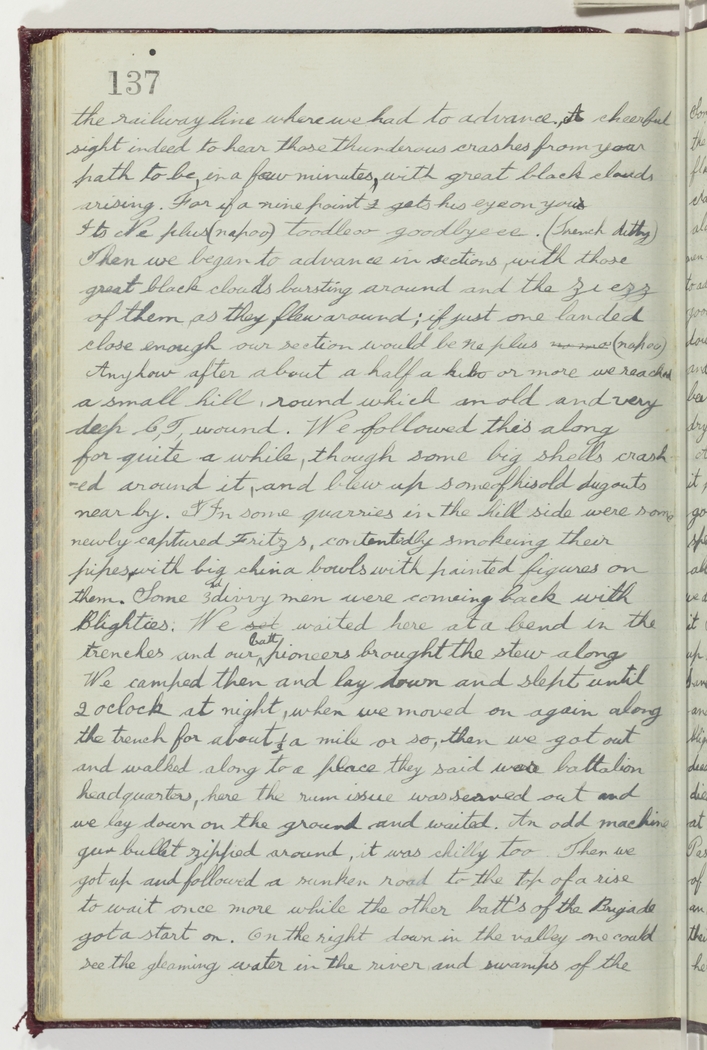 137
the railway line where we had to advance. A cheerful
sight indeed to hear those thunderous crashes from your
path to be, in a few minutes, with great black clouds
arising. For if a nine point 2 gets his eye on you
Its Ne plus (napoo) toodleoo goodbyeee. (Trench ditty)
Then we began to advance in sections, with those
great black clouds bursting around and the zi ezz
of them, as they flew around; if just one landed
close enough our section would be ne plus (napoo)
Anyhow after about a half a kilo or more we reached
a small hill, round which an old and very
deep C,T, wound. We followed this along
for quite a while, though some big shells crash
-ed around it, and blew up some of his old dugouts
near by. In some quarries in the hill side were some
newly captured Fritzs, contentedly smokeing their
pipes, with big china bowls with painted figures on
them. Some 3rd divvy men were comeing back with
Blighties. We set waited here at a bend in the
trenches and our batt pioneers brought the stew along
We camped then and lay down and slept until
2 oclock at night, when we moved on again along
the trench for about ½ a mile or so, then we got out
and walked along to a place they said was battalion
headquarters, here the rum issue was served out and
we lay down on the ground and waited. An odd machine
gun bullet zipped around, it was chilly too Then we
got up and followed a sunken road to the top of a rise
to wait once more while the other batt's of the Brigade
got a start on. On the right down in the valley one could
see the gleaming water in the river and swamps of the